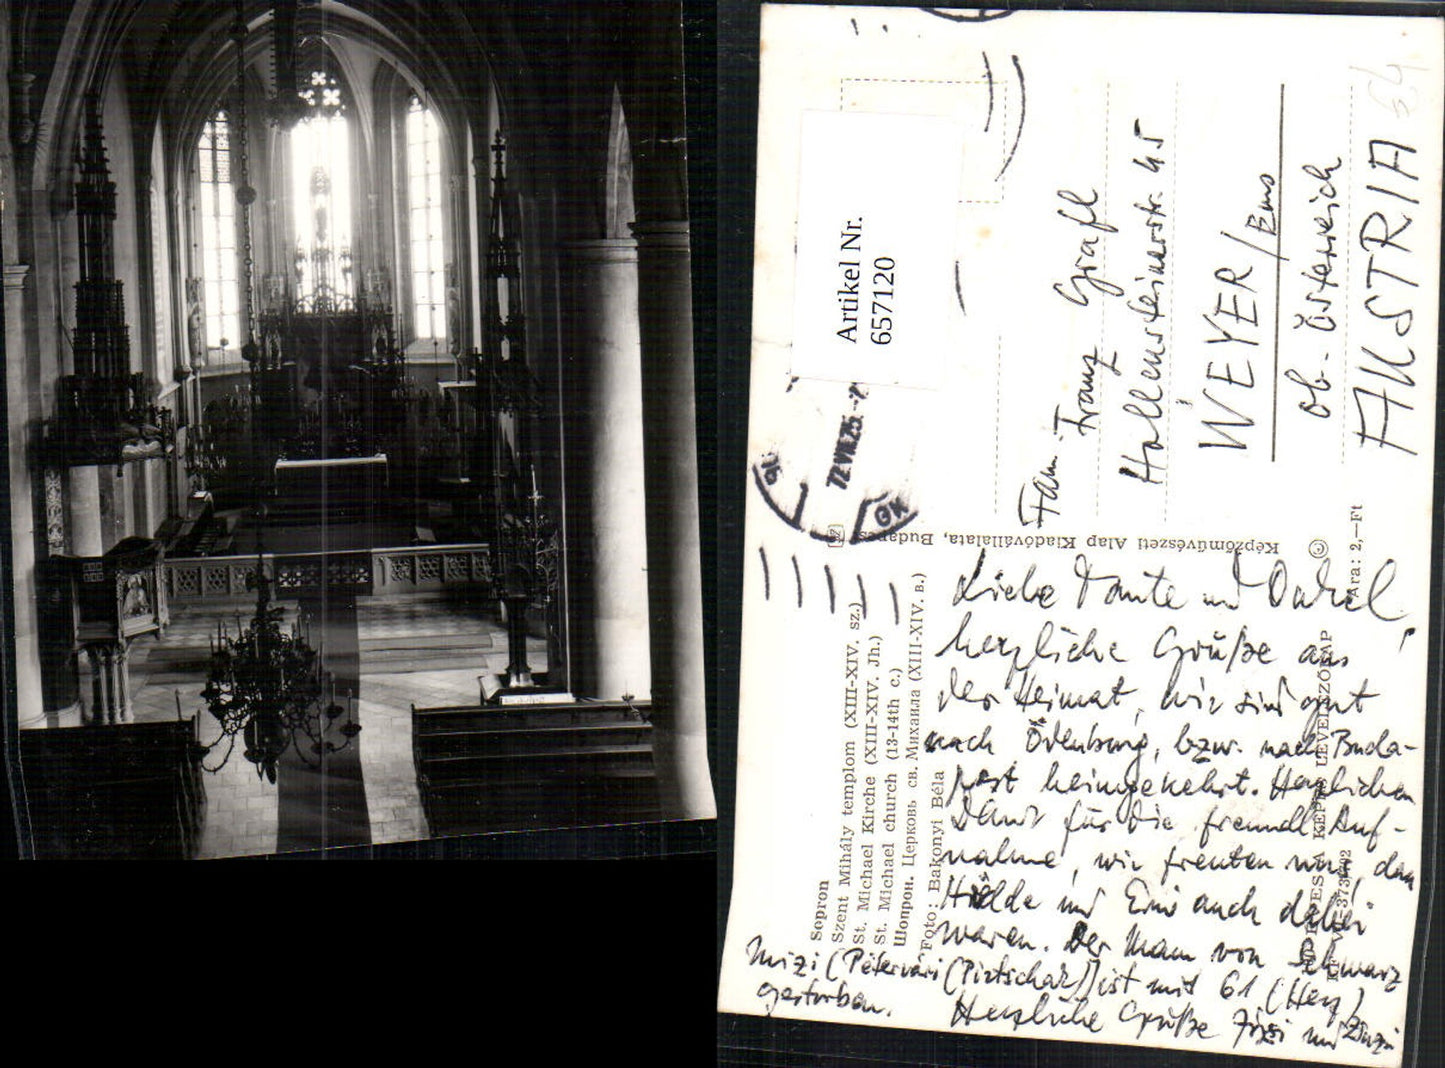 Artikel Nr.
657120
Fam. Franz Grafl
Hollensteinerstr. 45
WEYER/Enns
Ob.-Österreich
AUSTRIA
64
72 VIII 25
Képzőművészeti Alap Kiadóvállalata, Budapest
Ára: 2,—Ft
Sopron
Szent Mihály templom (XIII-XIV. sz.)
St. Michael Kirche (XIII-XIV. Jh.)
St. Michael church (13-14th c.)
Шопрон. Церковь св. Михаила (XIII-XIV. в.)
Foto: Bakonyi Béla
KÉPES LEVELEZŐLAP
Liebe Tante und Onkel!
herzliche Grüße aus
der Heimat, wir sind gut
nach Ödenburg, bzw. nach Buda-
pest heimgekehrt. Herzlichen
Dank für die freundl. Auf-
nahme, wir freuten uns, dass
Hilde und Erni auch dabei
waren. Der Mann von Schwarz
Mizi (Pétervári (Pirtschak)) ist mit 61 (Herz)
gestorben.
Herzliche Grüße und